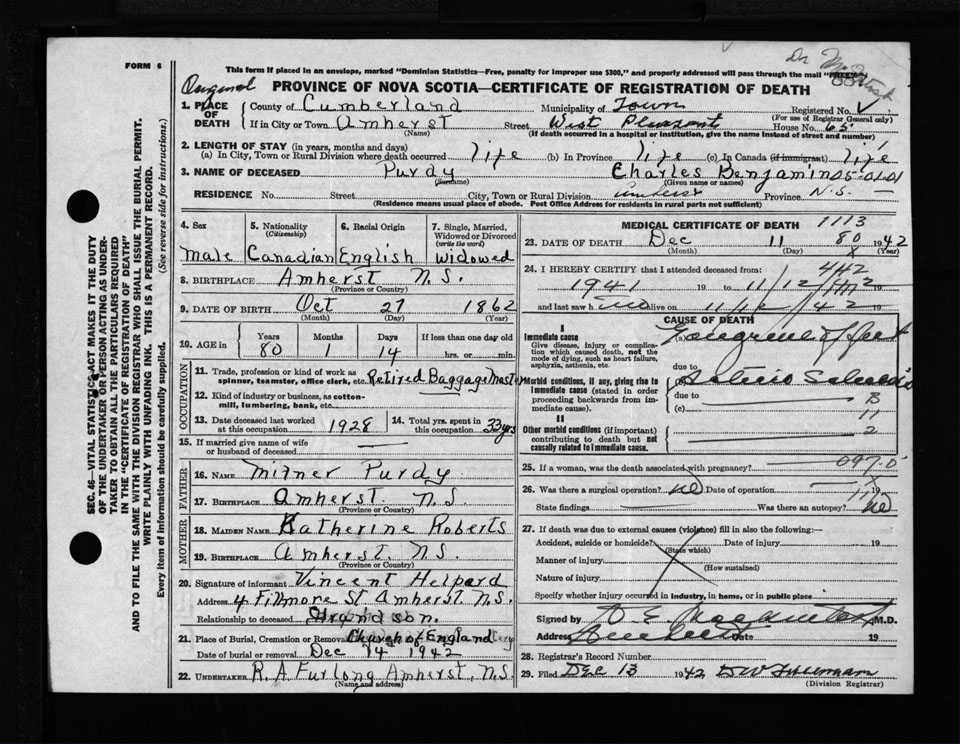 FORM 6
Dr. McIntosh
This form if placed in an envelope, marked "Dominion Statistics—Free, penalty for improper use $300," and properly addressed will pass through the mail "FREE"
Original PROVINCE OF NOVA SCOTIA—CERTIFICATE OF REGISTRATION OF DEATH
1. PLACE OF DEATH County of Cumberland Municipality of Town Registered No.
(For use of Registrar General only)
If in City or Town Amherst Street West Pleasant House No. 65
(Name) (If death occurred in a hospital or institution, give the name instead of street and number)
2. LENGTH OF STAY (in years, months and days)
(a) In City, Town or Rural Division where death occurred life (b) In Province life (c) In Canada (if immigrant) life
3. NAME OF DECEASED Purdy Charles Benjamin 05-01-01
(Surname) (Given name or names)
RESIDENCE No. Street City, Town or Rural Division Amherst Province N.S.
(Residence means usual place of abode. Post Office Address for residents in rural parts not sufficient)
SEC. 46—VITAL STATISTICS ACT MAKES IT THE DUTY
OF THE UNDERTAKER OR PERSON ACTING AS UNDER-
TAKER TO OBTAIN ALL THE PARTICULARS REQUIRED
IN THE "CERTIFICATE OF REGISTRATION OF DEATH"
AND TO FILE THE SAME WITH THE DIVISION REGISTRAR WHO SHALL ISSUE THE BURIAL PERMIT.
WRITE PLAINLY WITH UNFADING INK. THIS IS A PERMANENT RECORD.
Every item of information should be carefully supplied. (See reverse side for instructions.)
4. Sex 5. Nationality (Citizenship) 6. Racial Origin 7. Single, Married, Widowed or Divorced (write the word)
Male Canadian English Widowed
8. BIRTHPLACE Amherst N.S.
(Province or Country)
9. DATE OF BIRTH Oct 27 1862
(Month) (Day) (Year)
10. AGE in Years Months Days If less than one day old
80 1 14 hrs. or min.
OCCUPATION
11. Trade, profession or kind of work as
spinner, teamster, office clerk, etc. Retired Baggage Master
12. Kind of industry or business, as cotton-
mill, lumbering, bank, etc.
13. Date deceased last worked at this occupation 1928 14. Total yrs. spent in this occupation 33 yrs
15. If married give name of wife
or husband of deceased
FATHER
16. NAME Milner Purdy
17. BIRTHPLACE Amherst. N.S.
(Province or Country)
MOTHER
18. MAIDEN NAME Katherine Roberts
19. BIRTHPLACE Amherst. N.S.
(Province or Country)
20. Signature of informant Vincent Helpard
Address 4 Fillmore St Amherst. N.S.
Relationship to deceased Grandson.
21. Place of Burial, Cremation or Removal Church of England
Date of burial or removal Dec 14 1942
22. UNDERTAKER R. A. Furlong Amherst, N.S.
(Name and address)
MEDICAL CERTIFICATE OF DEATH 1113
23. DATE OF DEATH Dec 11 80 1942
(Month) (Day) (Year)
24. I HEREBY CERTIFY that I attended deceased from: 442
1941 19 to 11/12/ 19
and last saw h alive on 11/12/42 19
CAUSE OF DEATH
I
Immediate cause (a) Gangrene of foot
Give disease, injury or complica-
tion which caused death, not the
mode of dying, such as heart failure,
asphyxia, asthenia, etc.
due to
Morbid conditions, if any, giving rise to
immediate cause (stated in order
proceeding backwards from im-
mediate cause).
due to B
(c) 11
II
Other morbid conditions (if important)
contributing to death but not
causally related to immediate cause. 2
25. If a woman, was the death associated with pregnancy? 097.0
X
26. Was there a surgical operation? no Date of operation 19
State findings Was there an autopsy? no
27. If death was due to external causes (violence) fill in also the following:—
Accident, suicide or homicide? Date of injury 19
(State which)
Manner of injury
(How sustained)
Nature of injury
Specify whether injury occurred in industry, in home, or in public place
Signed by M.D.
Address Amherst Date 19
28. Registrar's Record Number
29. Filed Dec 13 1942
(Division Registrar)